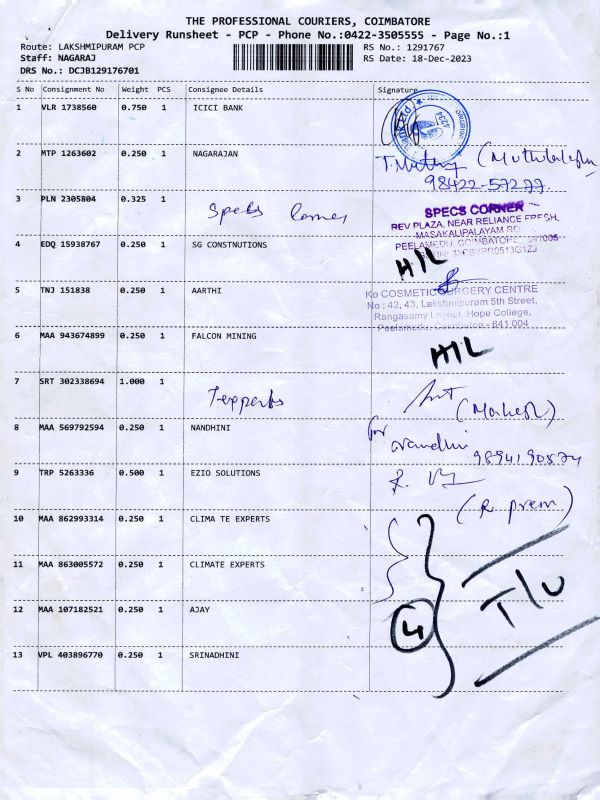 THE PROFESSIONAL COURIERS, COIMBATORE
Delivery Runsheet - PCP - Phone No.:0422-3505555 - Page No.:1
Route: LAKSHMIPURAM PCP RS No.: 1291767
Staff: NAGARAJ RS Date: 18-Dec-2023
DRS No.: DCJB129176701
S No Consignment No Weight PCS Consignee Details Signature
1 VLR 1738560 0.750 1 ICICI BANK
4234
2 MTP 1263602 0.250 1 NAGARAJAN
98422-57277
3 PLN 2305804 0.325 1 Specs Corner
SPECS CORNER
REV PLAZA, NEAR RELIANCE FRESH,
MASAKALIPALAYAM RO
4 EDQ 15938767 0.250 1 SG CONSTNUTIONS
PEELAMEDU, COIMBATORE
H/L
5 TNJ 151838 0.250 1 AARTHI
Ko COSMETIC SURGERY CENTRE
No : 42, 43, Lakshmipuram 5th Street,
Rangasamy Layout, Hope College,
Peelamedu, Coimbatore - 641 004
6 MAA 943674899 0.250 1 FALCON MINING
H/L
7 SRT 302338694 1.000 1 Texperts
(Mahesh)
8 MAA 569792594 0.250 1 NANDHINI
for nandhini
9894190574
9 TRP 5263336 0.500 1 EZIO SOLUTIONS
(R. prem)
10 MAA 862993314 0.250 1 CLIMA TE EXPERTS
11 MAA 863005572 0.250 1 CLIMATE EXPERTS
T/U
12 MAA 107182521 0.250 1 AJAY
4
13 VPL 403896770 0.250 1 SRINADHINI